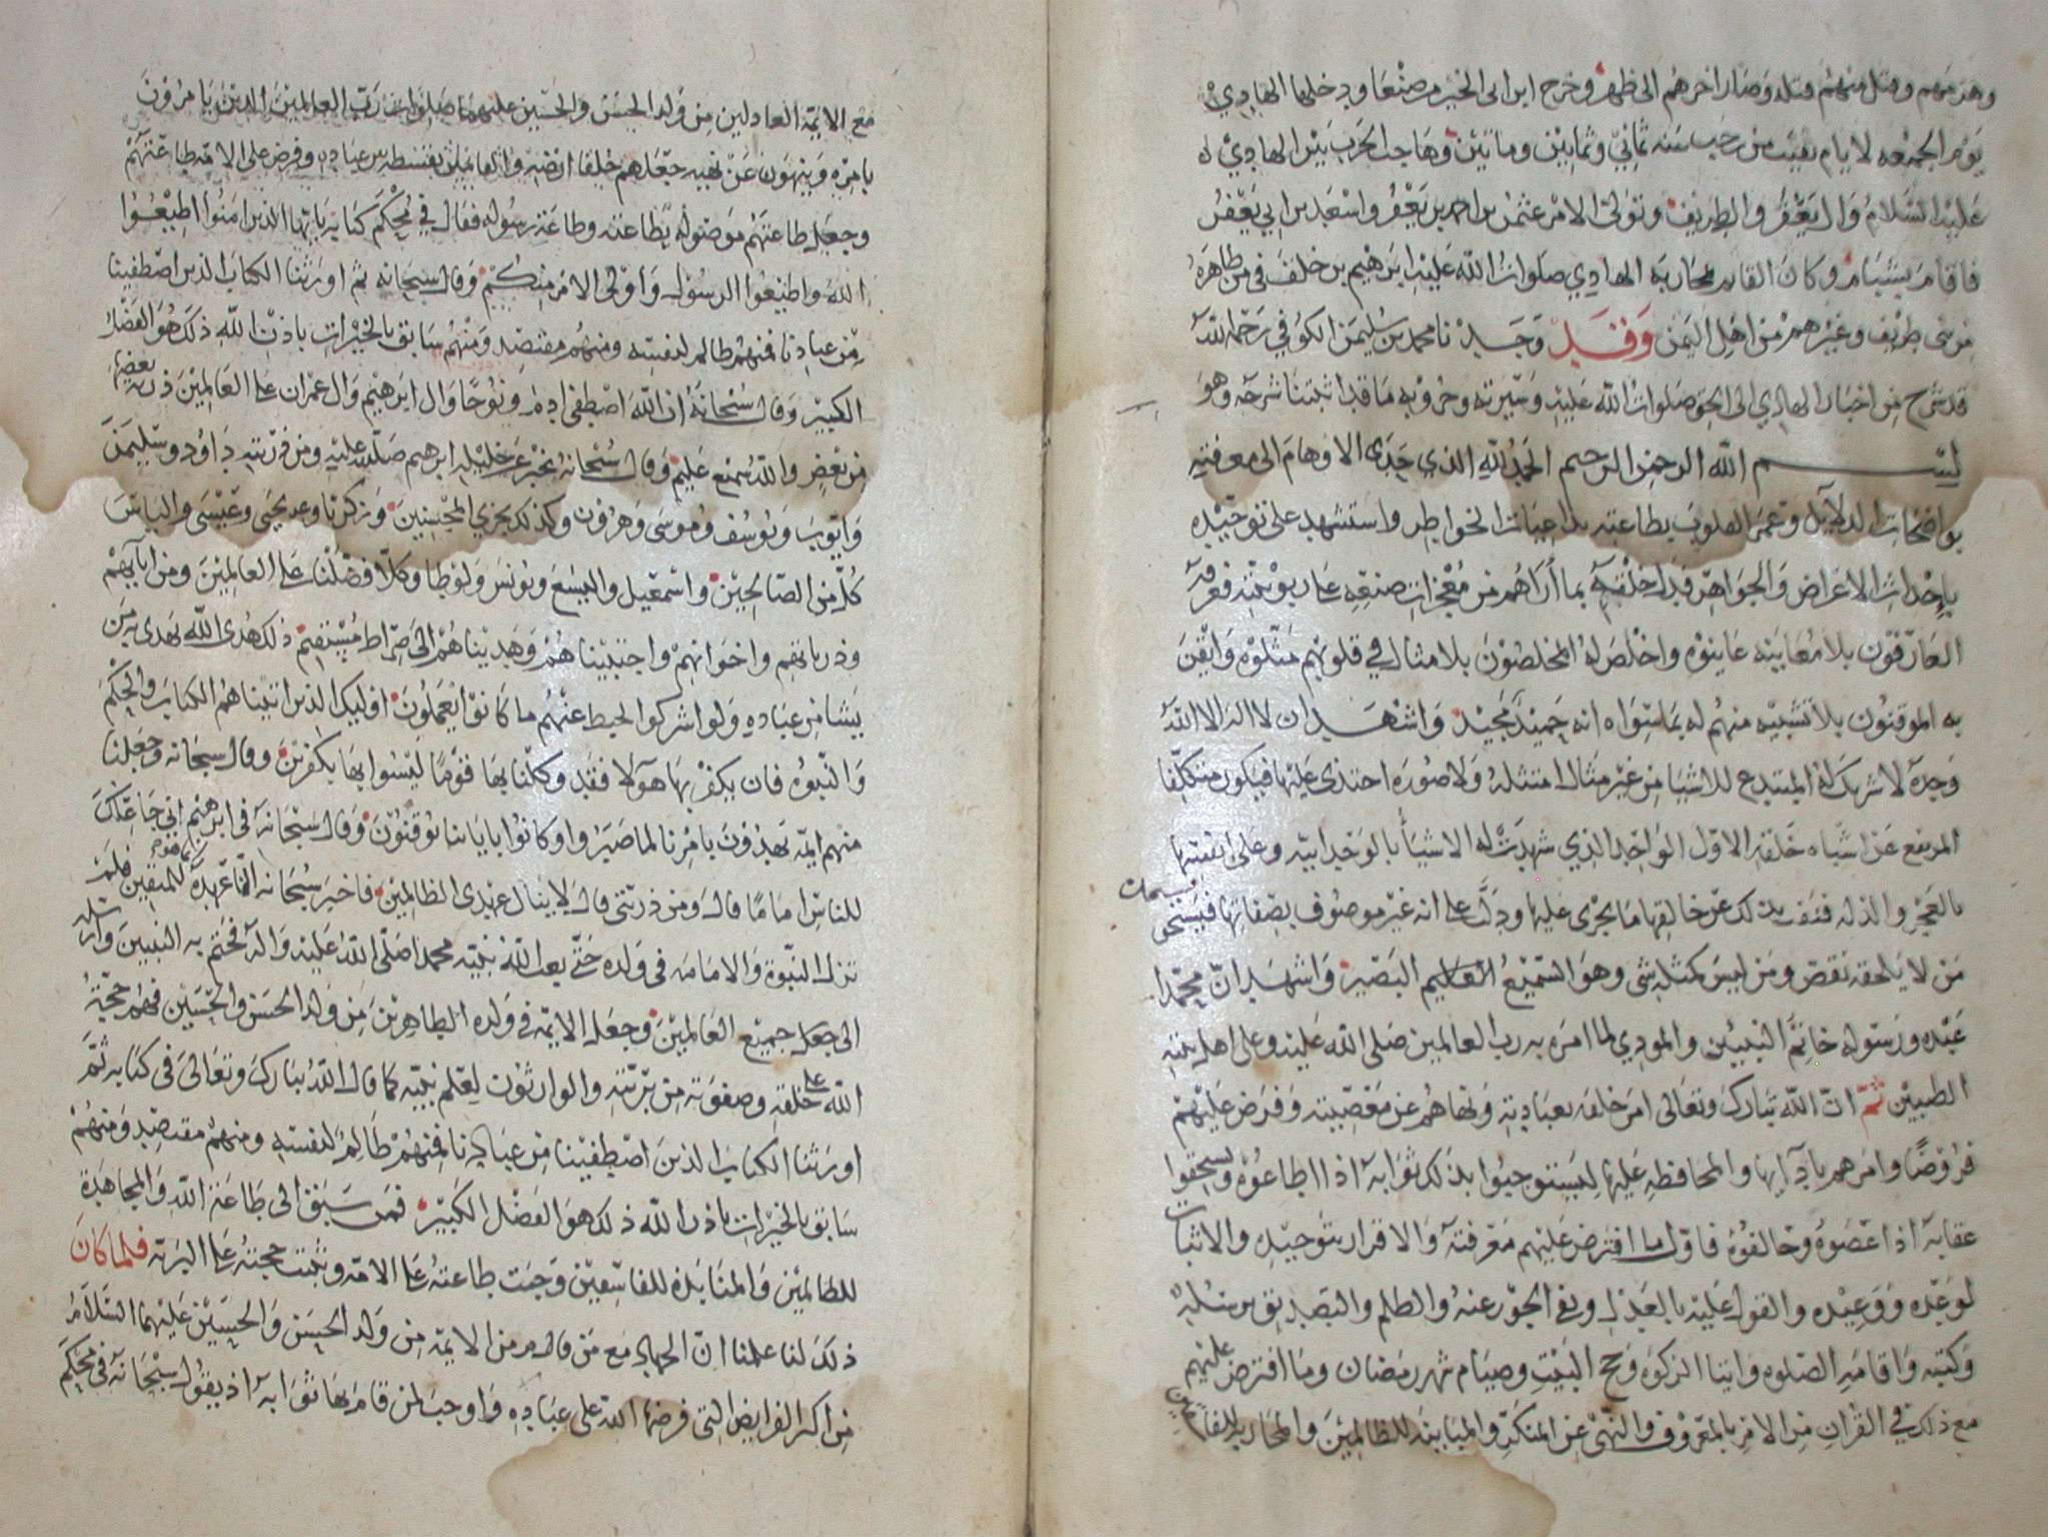 وهزمهم وقتل منهم قتله وصار اخرهم الى ظهر وخرج ابن ابى الخير من صنعا ودخلها الهادي
يوم الجمعه لايام بقيت من رجب سنه ثماني وثمانين وماتين وهاجت الحرب بين الهادي له
عليه السلام وال يعفر وال طريف وتولى الامر عثمن بن احمد بن يعفر واسعد بن ابي يعفر
فاقام بشبام وكان القايم لمحاربه الهادي صلوات الله عليه ابرهيم بن خلف فى من ظاهره
من بنى طريف وغيرهم من اهل اليمن وقد وجدنا محمد بن سليمن الكوفي رحمه الله
قد شرح من اخبار الهادي الى الحق صلوات الله عليه وسيرته وحروبه ما قد اثبتنا شرحه وهو
بسم الله الرحمن الرحيم الحمد لله الذي هدى الاوهام الى معرفته
بواضحات الدلايل وعمر القلوب بطاعته بداعيات الخواطر واستشهد على توحيده
باحداث الاعراض والجواهر فدل خلقه بما اراهم من معجزات صنعه على ربوبيته فعرفه
العارفون بلا معاينه عاينوه واخلص له المخلصون بلا مثال في قلوبهم مثلوه وايقن
به الموقنون بلا تشبيه منهم له بما سواه انه حميد مجيد واشهد ان لا اله الا الله
وحده لا شريك له المبتدع للاشيا من غير مثال امتثله ولا صوره احتذى عليها فيكون متكلفا
المرتفع عن اشباه خلقه الاول الواحد الذي شهدت له الاشيا بالوحدانيه وعلى انفسها
بالعجز والذله فنفت بذلك عن خالقها ما يجرى عليها ودل على انه غير موصوف بصفاتها فيستحق
من لا يلحقه نقص ومن ليس كمثله شى وهو السميع العليم البصير واشهد ان محمدا
عبده ورسوله خاتم النبيين والمودي لما امره به رب العالمين صلى الله عليه وعلى اهل بيته
الطيبين ثم ان الله تبارك وتعالى امر خلقه بعبادته ونهاهم عن معصيته وفرض عليهم
فروضا وامرهم بادايها والمحافظه عليها ليستوجبوا بذلك ثوابه اذا اطاعوه ويستحقوا
عقابه اذا عصوه وخالفوه فاول ما افترض عليهم معرفته والاقرار بتوحيده والاثبات
لوعده ووعيده والقول عليه بالعدل ونفي الجور عنه والظلم والتصديق برسله
وكتبه واقامه الصلوه وايتا الزكوه وحج البيت وصيام شهر رمضان وما افترض عليهم
مع ذلك في القران من الامر بالمعروف والنهي عن المنكر والمباينه للظالمين والمحاربه للفاسقين
مع الايمه العادلين من ولد الحسن والحسين عليهما صلوات رب العالمين الذين يامرون
بامره وينهون عن نهيه جعلهم خلفا ارضه والقايمين بقسطه بين عباده وفرض على الامه طاعتهم
وجعل طاعتهم موصوله بطاعته وطاعة رسوله فقال في محكم كتابه ياايها الذين امنوا اطيعوا
الله واطيعوا الرسول واولى الامر منكم وقال سبحانه ثم اورثنا الكتاب الذين اصطفينا
من عبادنا فمنهم ظالم لنفسه ومنهم مقتصد ومنهم سابق بالخيرات باذن الله ذلك هو الفضل
الكبير وقال سبحانه ان الله اصطفى ادم ونوحا وال ابرهيم وال عمران على العالمين ذريه بعضها
من بعض والله سميع عليم وقال سبحانه يخبر عن خليله ابرهيم صلى الله عليه ومن ذريته داود وسليمن
وايوب ويوسف وموسى وهرون وكذلك نجزي المحسنين وزكريا ويحيى وعيسى والياس
كل من الصالحين واسمعيل واليسع ويونس ولوطا وكلا فضلنا على العالمين ومن ابايهم
وذرياتهم واخوانهم واجتبيناهم وهديناهم الى صراط مستقيم ذلك هدى الله يهدى به من
يشا من عباده ولو اشركوا لحبط عنهم ما كانوا يعملون اوليك الذين اتيناهم الكتاب والحكم
والنبوه فان يكفر بها هولا فقد وكلنا بها قوما ليسوا بها بكفرين وقال سبحانه وجعلنا
منهم ايمه يهدون بامرنا لما صبروا وكانوا باياتنا يوقنون وقال سبحانه في ابرهيم اني جاعلك
للناس اماما قال ومن ذريتي قال لا ينال عهدى الظالمين فاخبر سبحانه انما عهده للمتقين فلم
تزل النبوة والامامه فى ولده حتى بعث الله نبيه محمدا صلى الله عليه واله فختم به النبيين وارسله
الى جميع العالمين وجعل الايمه في ولده الطاهرين من ولد الحسن والحسين فهم حجة
الله على خلقه وصفوته من بريته والوارثون لعلم نبيه كما قال الله تبارك وتعالى فى كتابه ثم
اورثنا الكتاب الذين اصطفينا من عبادنا فمنهم ظالم لنفسه ومنهم مقتصد ومنهم
سابق بالخيرات باذن الله ذلك هو الفضل الكبير فمن سبق الى طاعة الله والمجاهدة
للظالمين والمنابذه للفاسقين وجبت طاعته على الامه وثبتت حجته على البريه فلما كان
ذلك لنا علمنا ان الجهاد مع من قام من الايمه من ولد الحسن والحسين عليهما السلام
من اكبر الفرايض التي فرضها الله على عباده واوجب لمن قام بها ثوابه اذ يقول سبحانه فى محكم